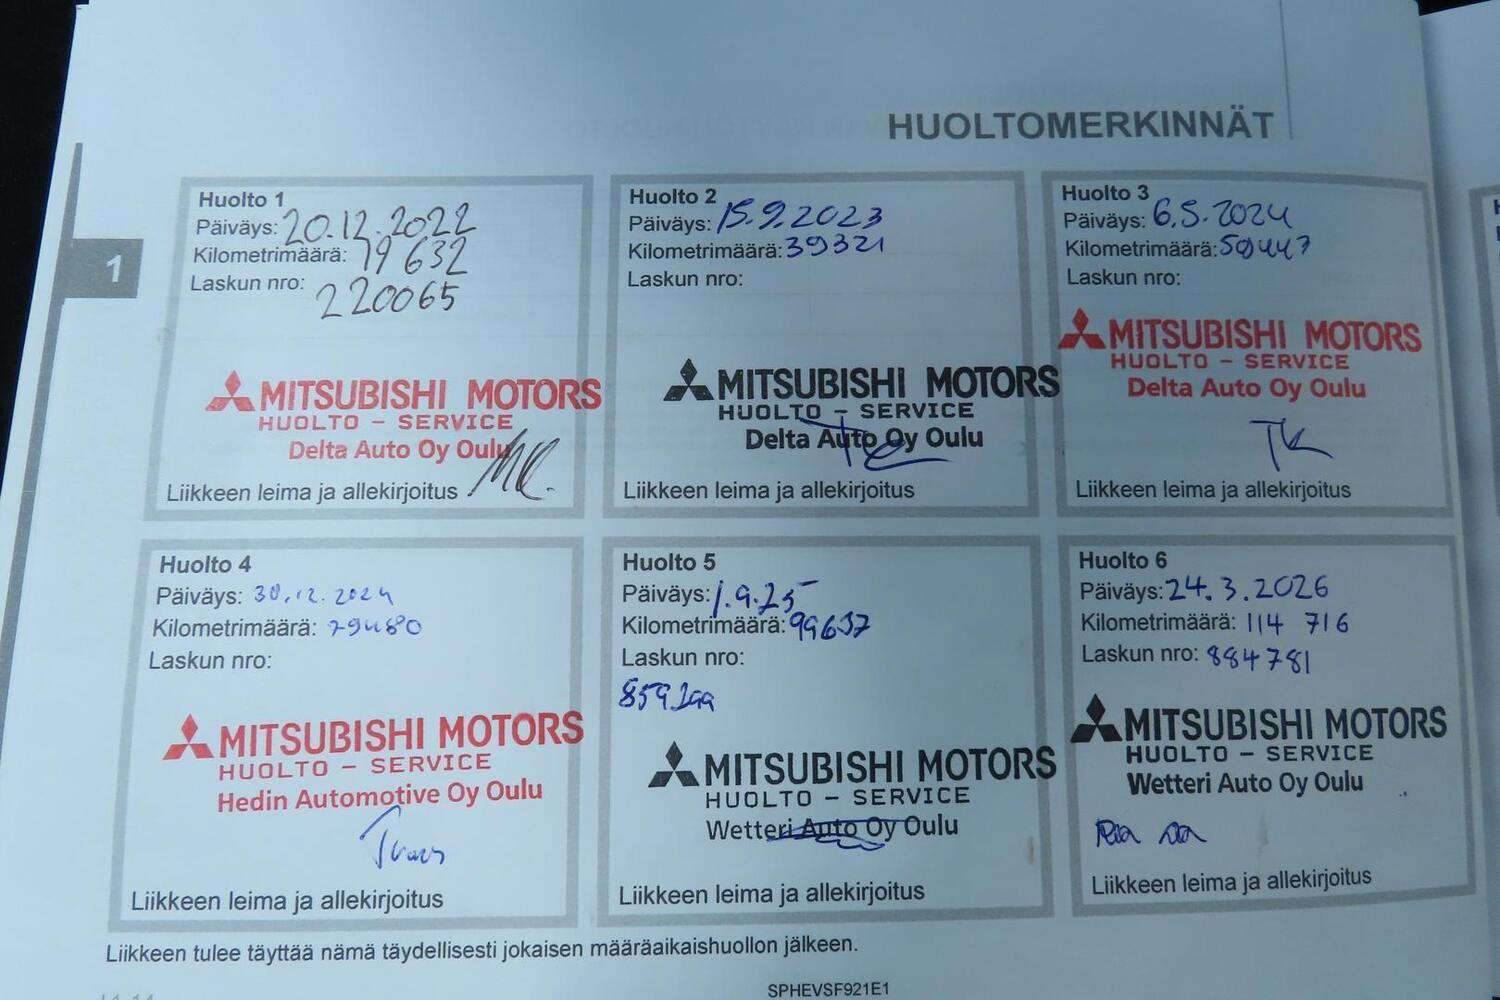 HUOLTOMERKINNÄT
1
Huolto 1
Päiväys: 20.12.2022
Kilometrimäärä: 19 632
Laskun nro: 220065
MITSUBISHI MOTORS
HUOLTO - SERVICE
Delta Auto Oy Oulu
Liikkeen leima ja allekirjoitus
Huolto 2
Päiväys: 15.9.2023
Kilometrimäärä: 39321
Laskun nro:
MITSUBISHI MOTORS
HUOLTO - SERVICE
Delta Auto Oy Oulu
Liikkeen leima ja allekirjoitus
Huolto 3
Päiväys: 6.5.2024
Kilometrimäärä: 59447
Laskun nro:
MITSUBISHI MOTORS
HUOLTO - SERVICE
Delta Auto Oy Oulu
TK
Liikkeen leima ja allekirjoitus
Huolto 4
Päiväys: 30.12.2024
Kilometrimäärä: 79480
Laskun nro:
MITSUBISHI MOTORS
HUOLTO - SERVICE
Hedin Automotive Oy Oulu
Liikkeen leima ja allekirjoitus
Huolto 5
Päiväys: 1.9.25
Kilometrimäärä: 99637
Laskun nro:
MITSUBISHI MOTORS
HUOLTO - SERVICE
Wetteri Auto Oy Oulu
Liikkeen leima ja allekirjoitus
Huolto 6
Päiväys: 24.3.2026
Kilometrimäärä: 114 716
Laskun nro: 884781
MITSUBISHI MOTORS
HUOLTO - SERVICE
Wetteri Auto Oy Oulu
Liikkeen leima ja allekirjoitus
Liikkeen tulee täyttää nämä täydellisesti jokaisen määräaikaishuollon jälkeen.
SPHEVSF921E1